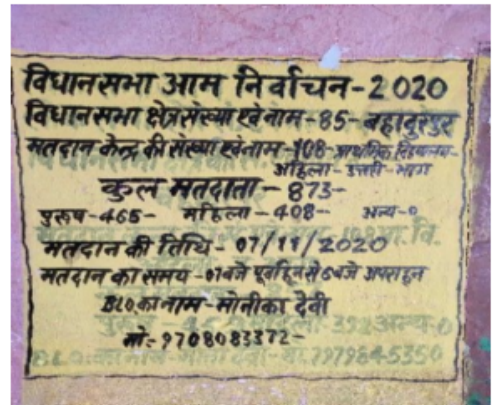 विधानसभा आम निर्वाचन-2020
विधानसभा क्षेत्र संख्या एवं नाम-85- बहादुरपुर
मतदान केन्द्र की संख्या एवं नाम-108- प्राथमिक विद्यालय-
अहिला- उत्तरी- भाग
कुल मतदाता - 873-
पुरुष-465- महिला-408- अन्य-0
मतदान की तिथि - 07/11/2020
मतदान का समय -07बजे पूर्वाह्न से 6बजे अपराह्न
BLO.का नाम- मोनीका देवी
मो:- 9708083372-